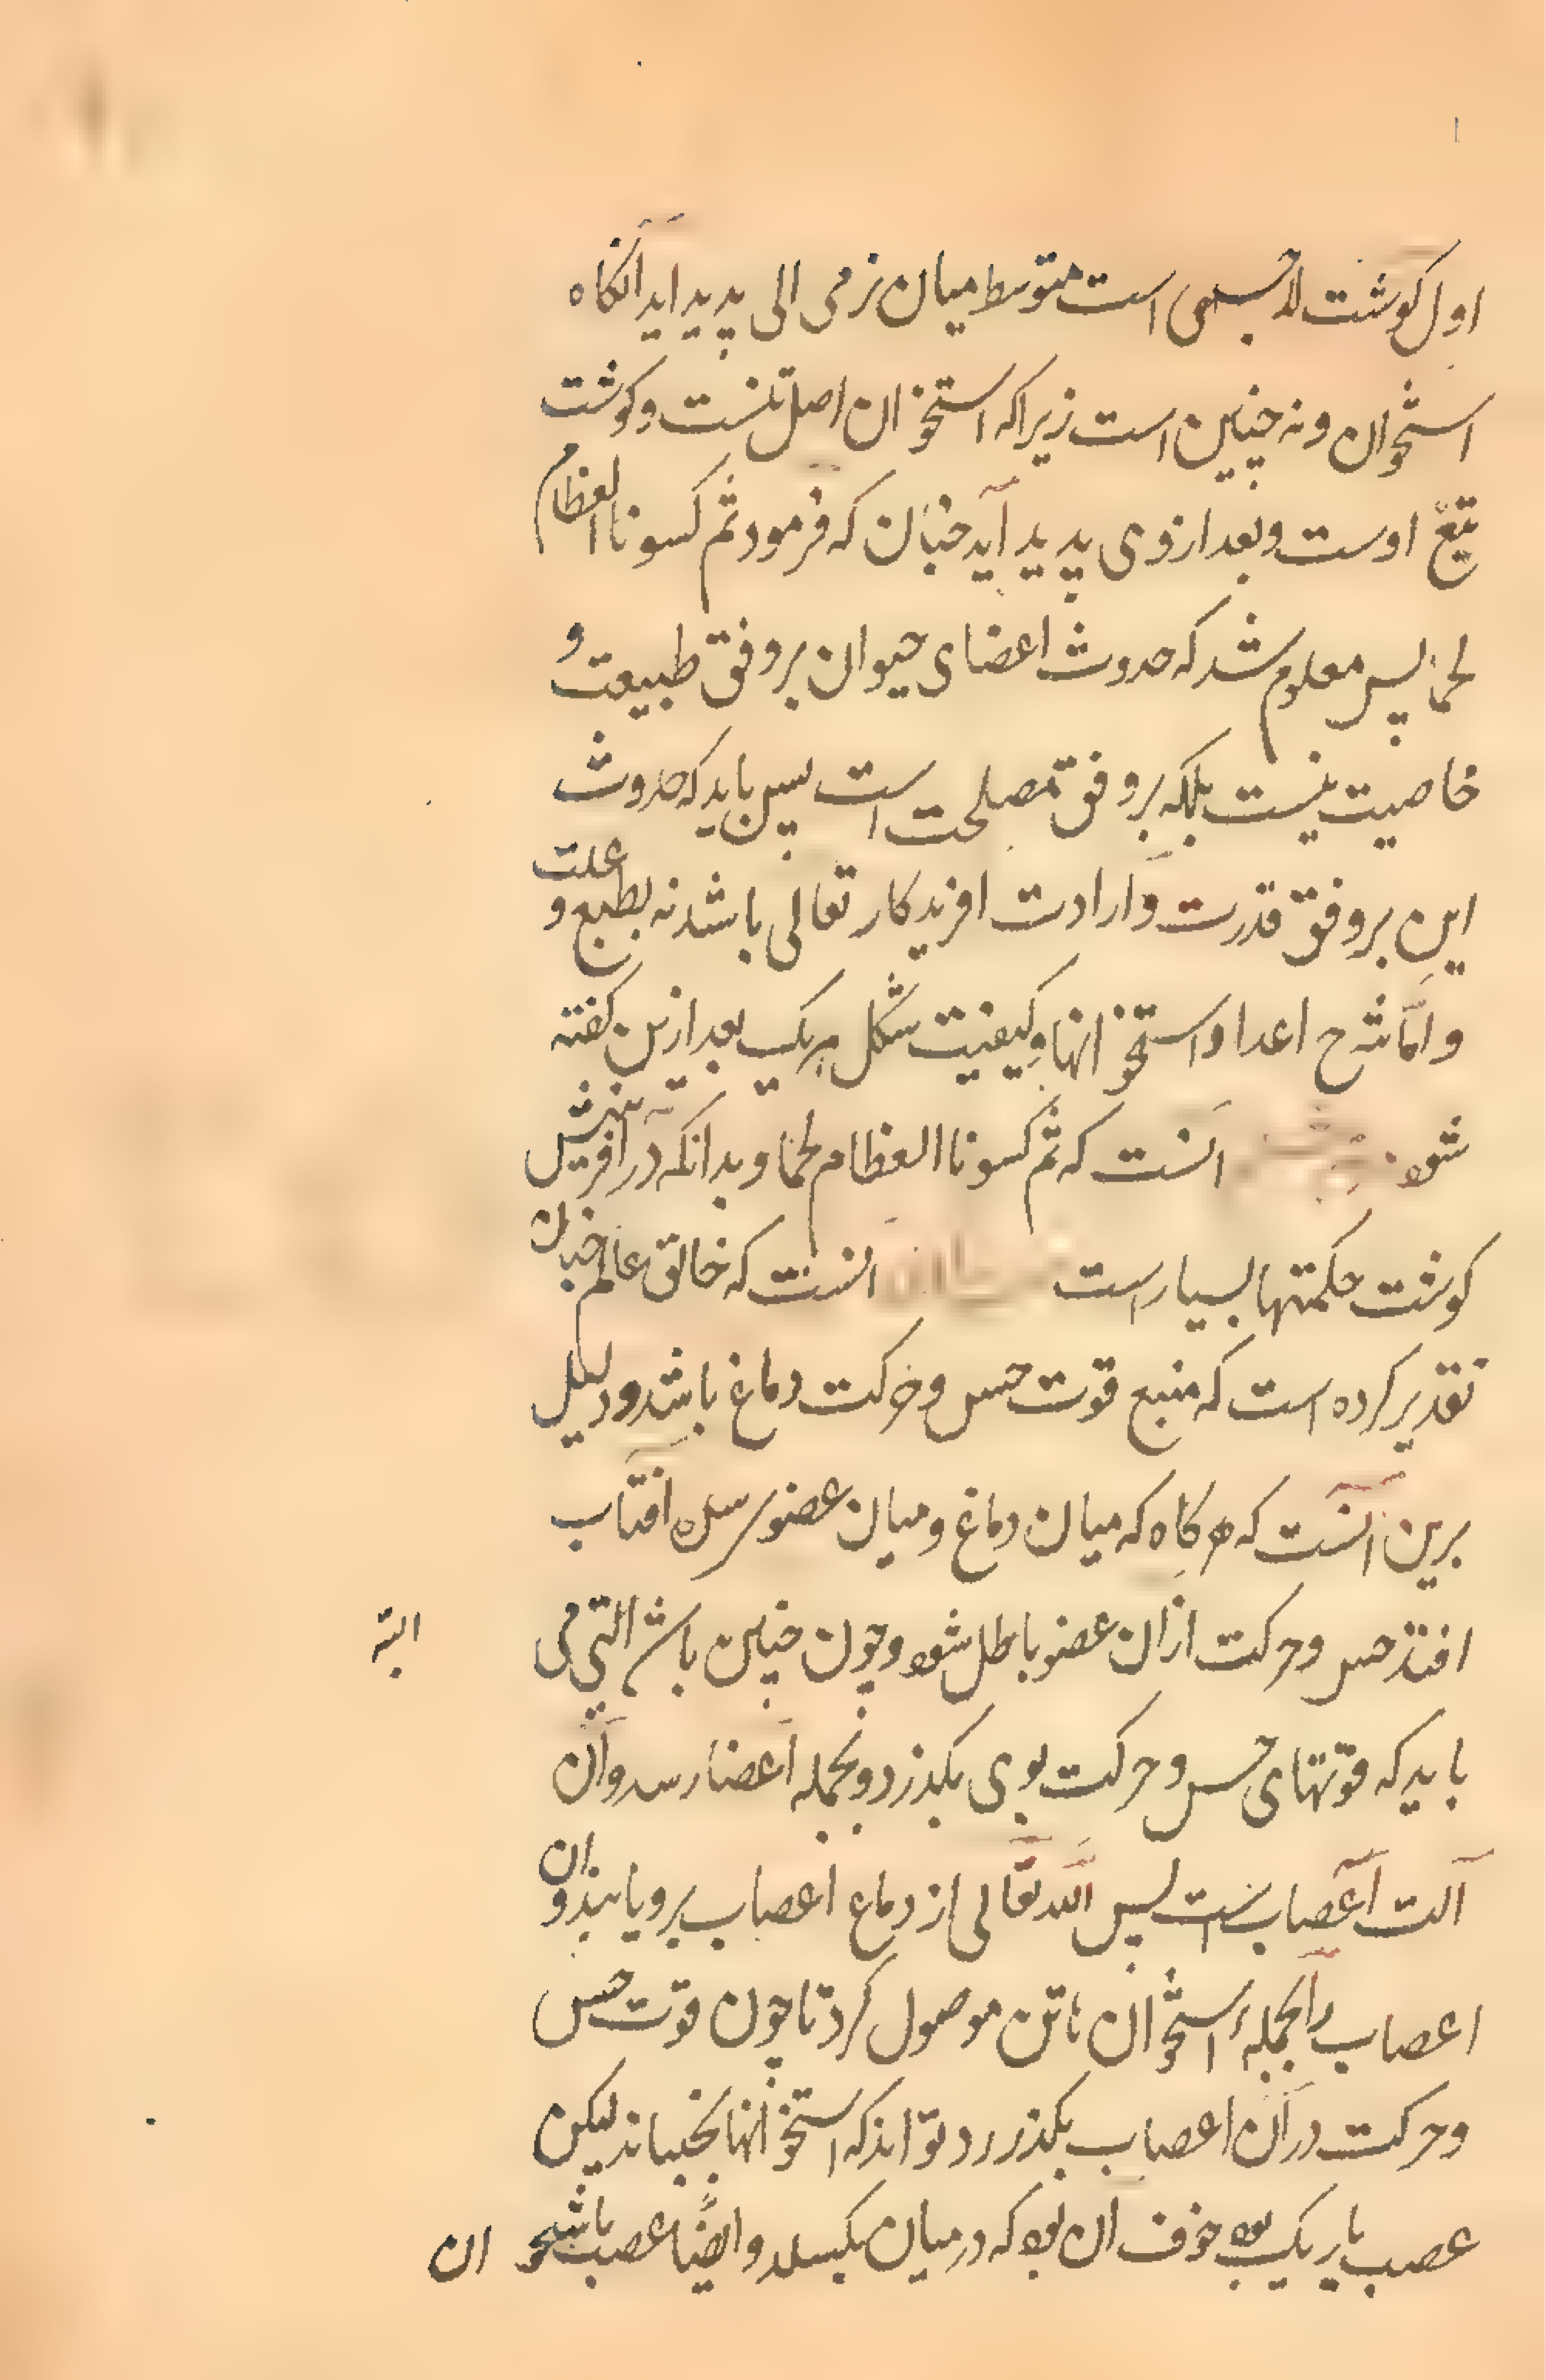 اول کوشت لاجسمی است متوسط میان نرمی الی پدید اید آنکاه
استخوان ونه چنین است زیراکه استخوان اصل تنست وکوشت
تبع اوست وبعد ازوی پدید آید چنان که فرمود ثم کسونا العظام
لحما پس معلوم شد که حدوث اعضای حیوان بروفق طبیعت و
خاصیت نیست بلکه بروفق مصلحت است پس باید که حدوث
این بروفق قدرت وارادت افریدکار تعالی باشد نه بطبع و علت
واما شرح اعداد استخوانها وکیفیت شکل هریک بعد ازین کفته
شود آنست که ثم کسونا العظام لحما وبدانکه در آفرینش
کوشت حکمتها بسیار است آنست که خالق عالم چنان
تقدیر کرده است که منبع قوت حس وحرکت دماغ باشد ودلیل
برین آنست که هرکاه که میان دماغ ومیان عضو سده افتاب
افتد حس وحرکت ازان عضو باطل شود وچون چنین باشد التی می
البته
باید که قوتهای حس وحرکت بوی بکذرد وبجمله اعضا رسد وآن
آلت اعصاب است پس الله تعالی از دماغ اعصاب برویانید و ان
اعصاب را بجمله استخوان تاتن موصول کرد تا چون قوت حس
وحرکت در آن اعصاب بکذرد تواند که استخوانها بجنباند لیکن
عصب باریک بود خوف آن بود که درمیان بکسلد وایضا عصب باستخوان